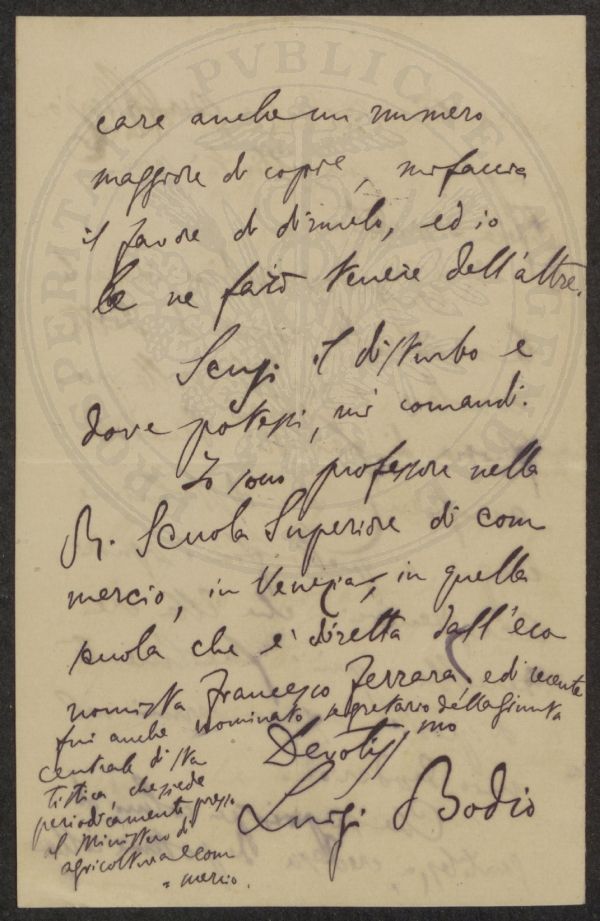 care anche un numero
maggiore di copie, mi faccia
il favore di dirmelo, ed io
le ne farò tenere dell'altre.
Scusi il disturbo e
dove potessi, mi comandi.
Io sono professore nella
R. Scuola Superiore di com
mercio, in Venezia, in quella
scuola che è diretta dall'eco
nomista Francesco Ferrara, ed i recente
fui anche nominato segretario della Giunta
centrale di sta
tistica che siede
periodicamente presso
al Ministero di
agricoltura e com
= mercio.
Devotissmo
Luigi Bodio
PVBLICAE
PROSPERITATI